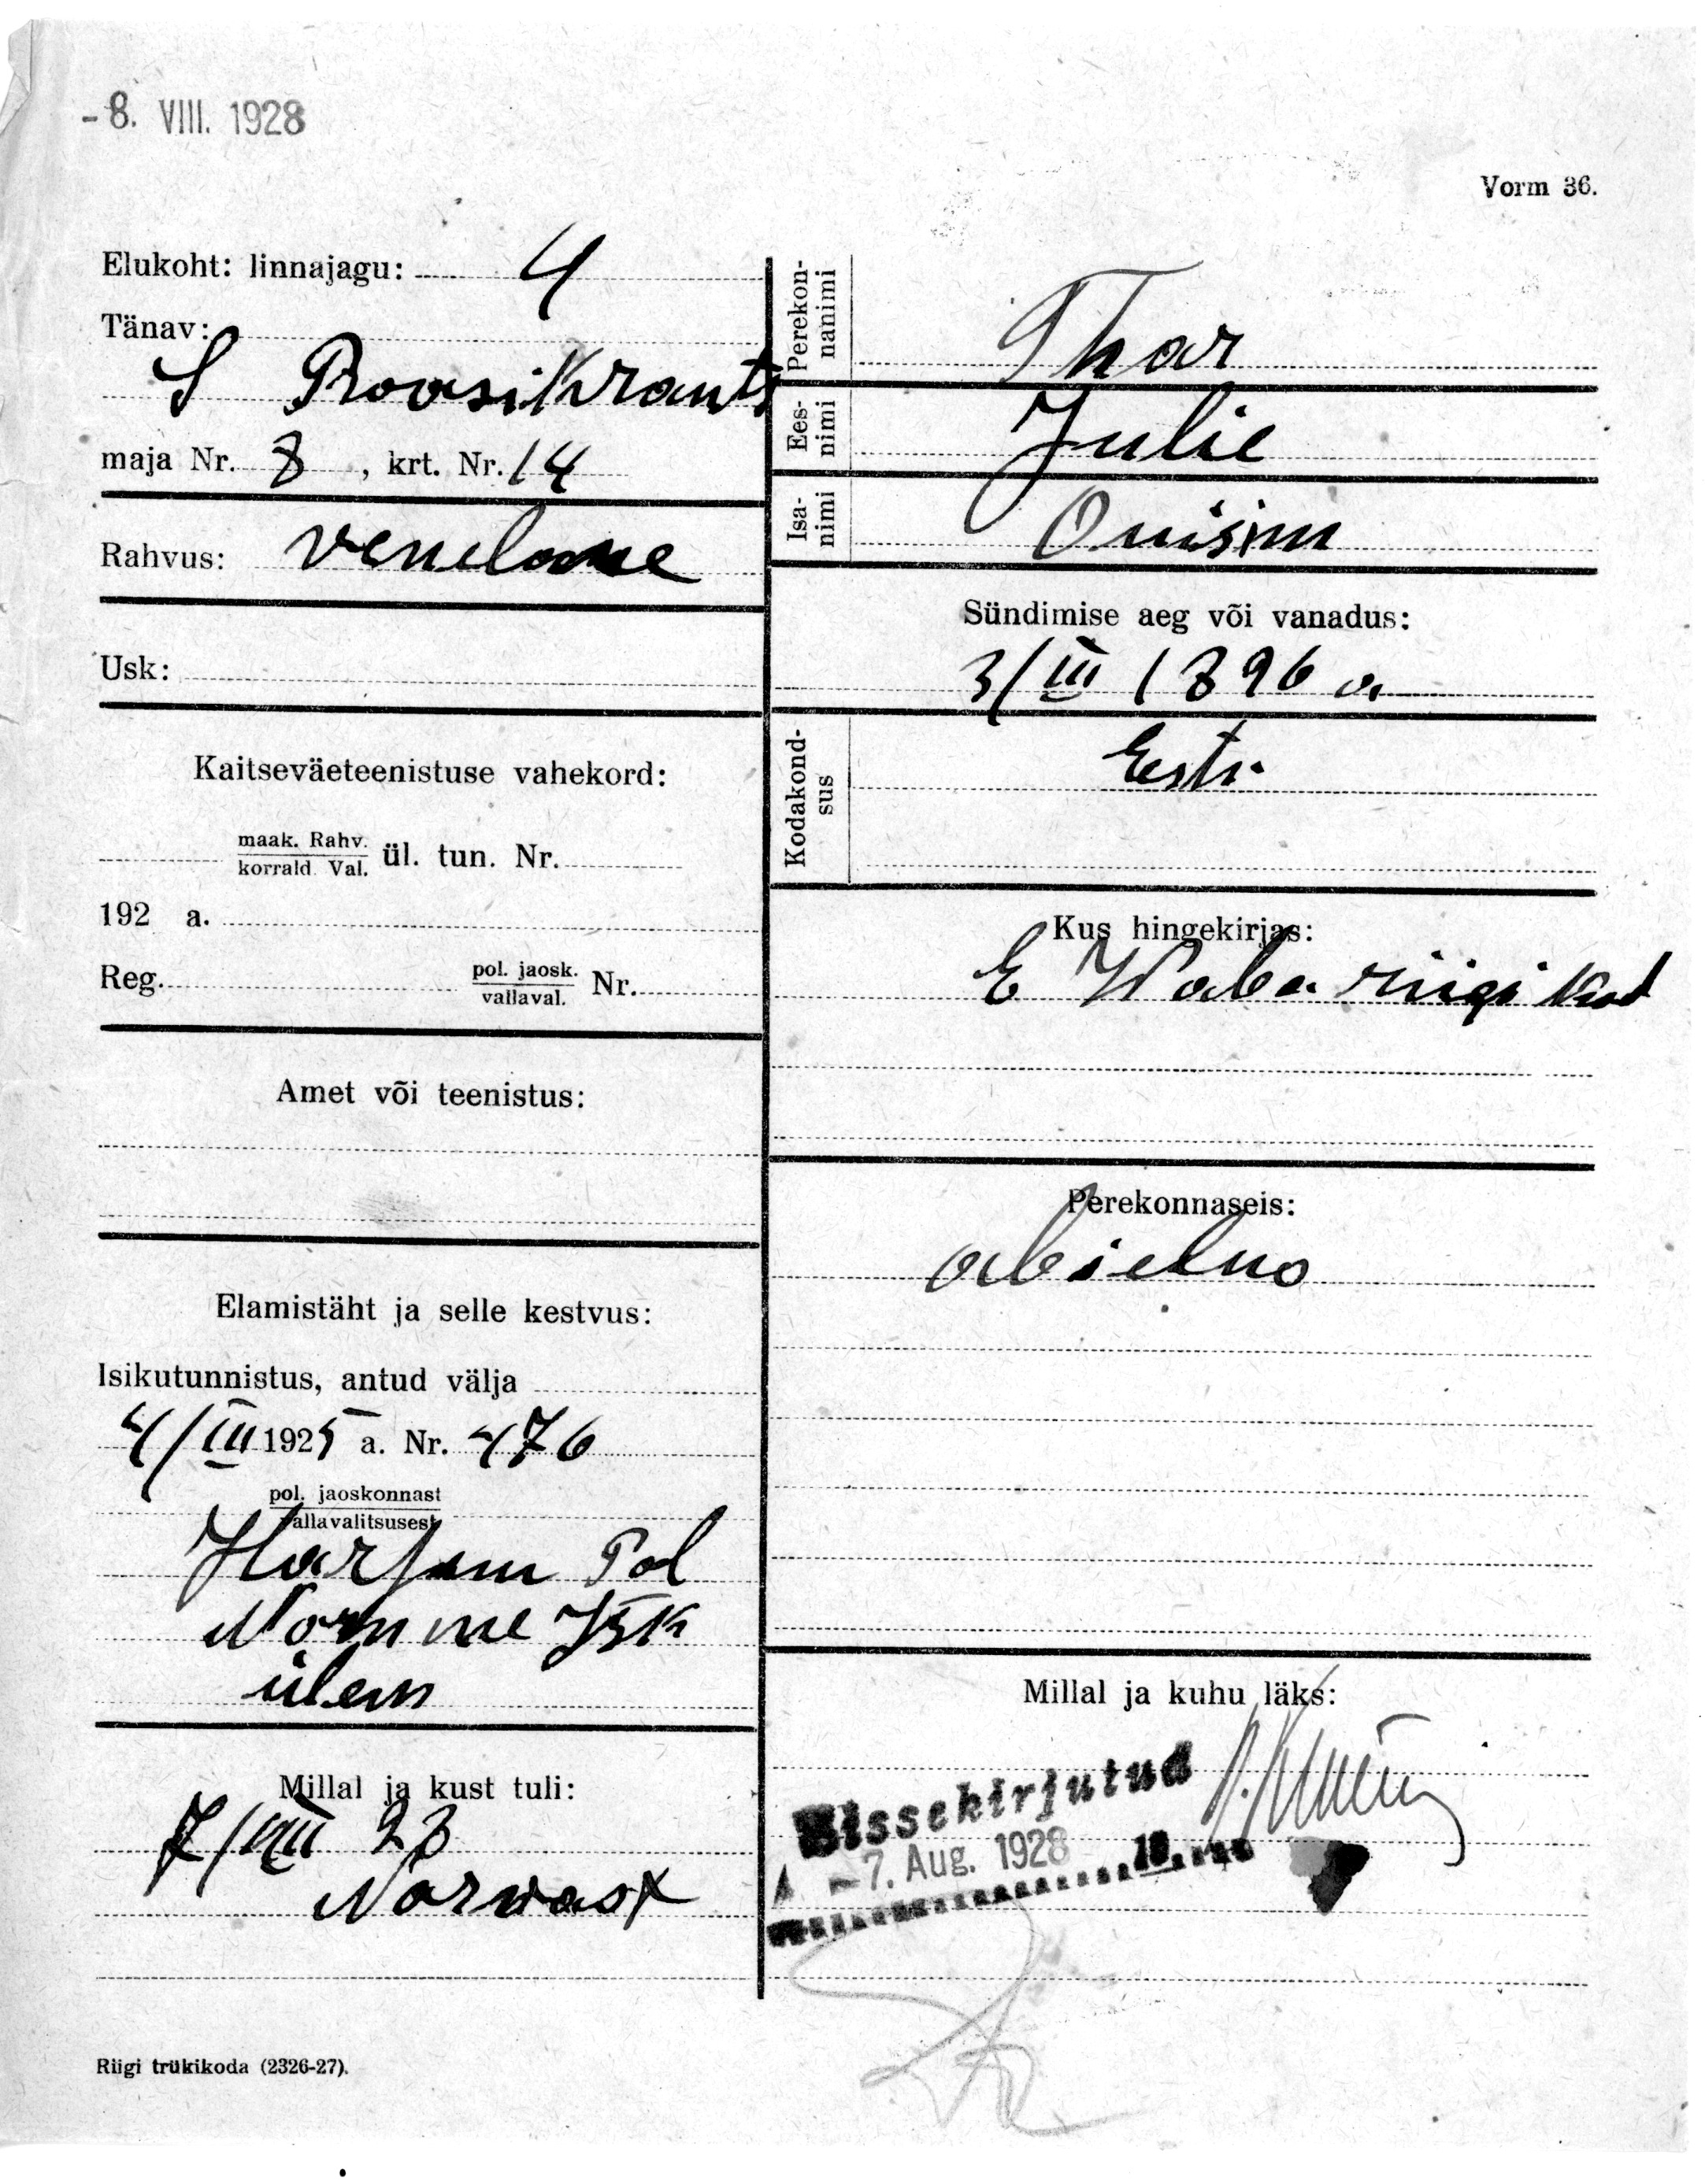 -8. VIII. 1928
Vorm 36.
Elukoht: linnajagu: 4
Tänav:
S Roosikrants
maja Nr. 8, krt. Nr. 14
Rahvus: venelane
Usk:
Kaitseväeteenistuse vahekord:
maak. Rahv.
korrald. Val. ül. tun. Nr.
192 a.
Reg. pol. jaosk.
vallaval. Nr.
Amet või teenistus:
Elamistäht ja selle kestvus:
Isikutunnistus, antud välja
4/III 1925 a. Nr. 476
pol. jaoskonnast
vallavalitsusest
Harjum Pol
Nõmme Jsk
ülem
Millal ja kust tuli:
7/VIII 28
Narvast
Riigi trükikoda (2326-27).
Perekon-
nanimi
Thar
Ees-
nimi
Julie
Isa-
nimi
Onisim
Sündimise aeg või vanadus:
3/III 1896 a.
Kodakond-
sus
Eesti
Kus hingekirjas:
E Wabariigi kod
Perekonnaseis:
abielus
Millal ja kuhu läks:
Sissekirjutud
-7. Aug. 1928